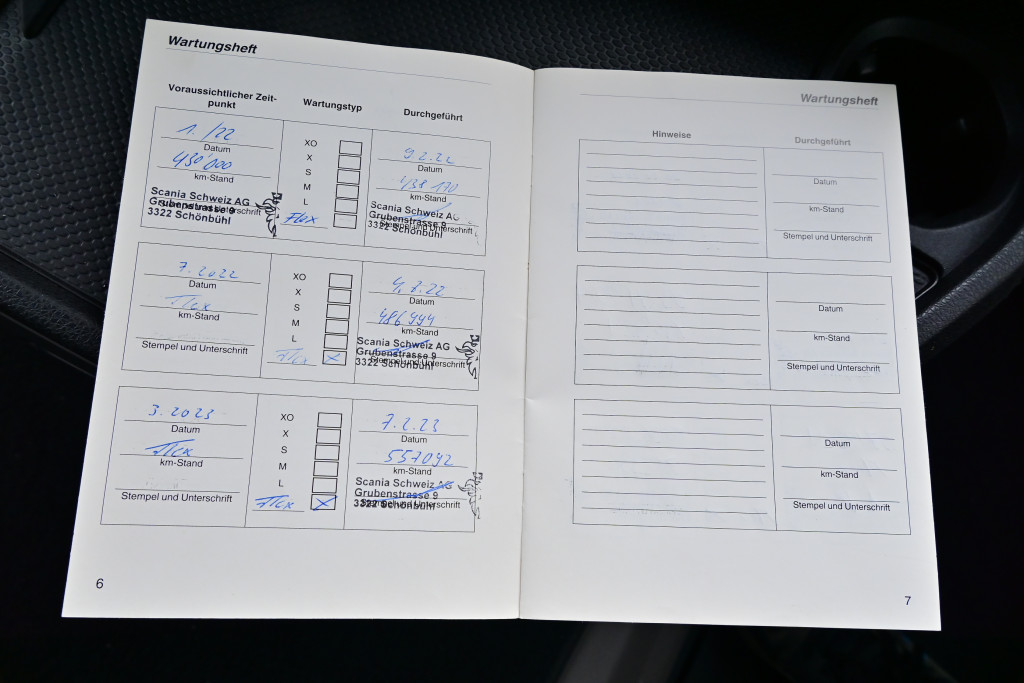 Wartungsheft
Voraussichtlicher Zeit-
punkt
Wartungstyp
Durchgeführt
1. /22
Datum
430'000
km-Stand
Scania Schweiz AG
Grubenstrasse 9
3322 Schönbühl
XO
X
S
M
L
Flex
9.2.22
Datum
438 170
km-Stand
Scania Schweiz AG
Grubenstrasse 9
Stempel und Unterschrift
3322 Schönbühl
7. 2022
Datum
Flex
km-Stand
Stempel und Unterschrift
XO
X
S
M
L
Flex X
Datum
486994
km-Stand
Scania Schweiz AG
Grubenstrasse 9
Stempel und Unterschrift
3322 Schönbühl
3. 2023
Datum
Flex
km-Stand
Stempel und Unterschrift
XO
X
S
M
L
Flex X
7.2.23
Datum
557092
km-Stand
Scania Schweiz AG
Grubenstrasse 9
Stempel und Unterschrift
3322 Schönbühl
6
Wartungsheft
Hinweise
Durchgeführt
Datum
km-Stand
Stempel und Unterschrift
Datum
km-Stand
Stempel und Unterschrift
Datum
km-Stand
Stempel und Unterschrift
7